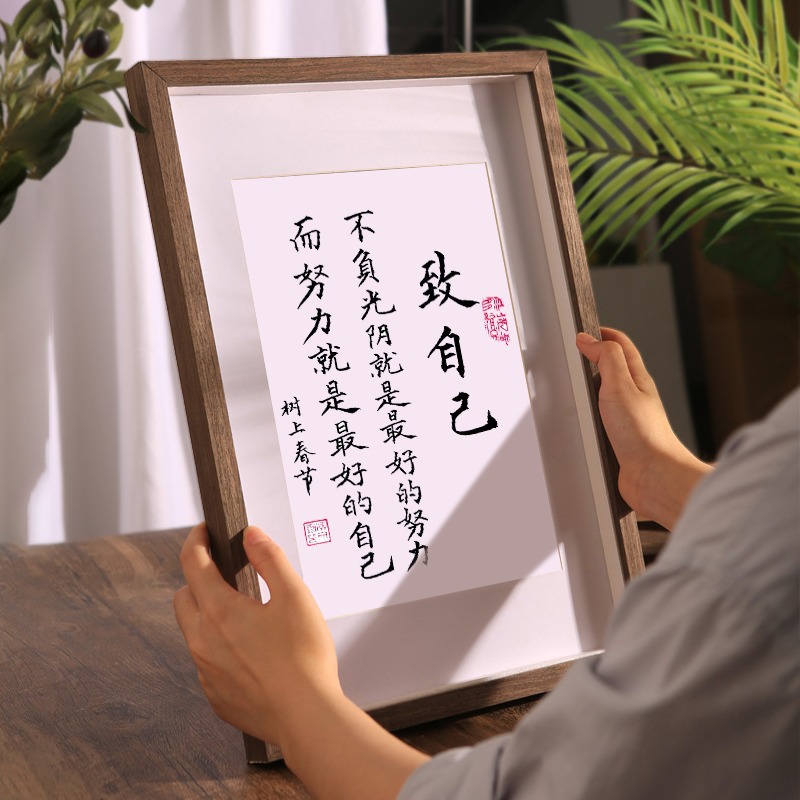 致自己
不負光阴就是最好的努力
而努力就是最好的自己
树上春节